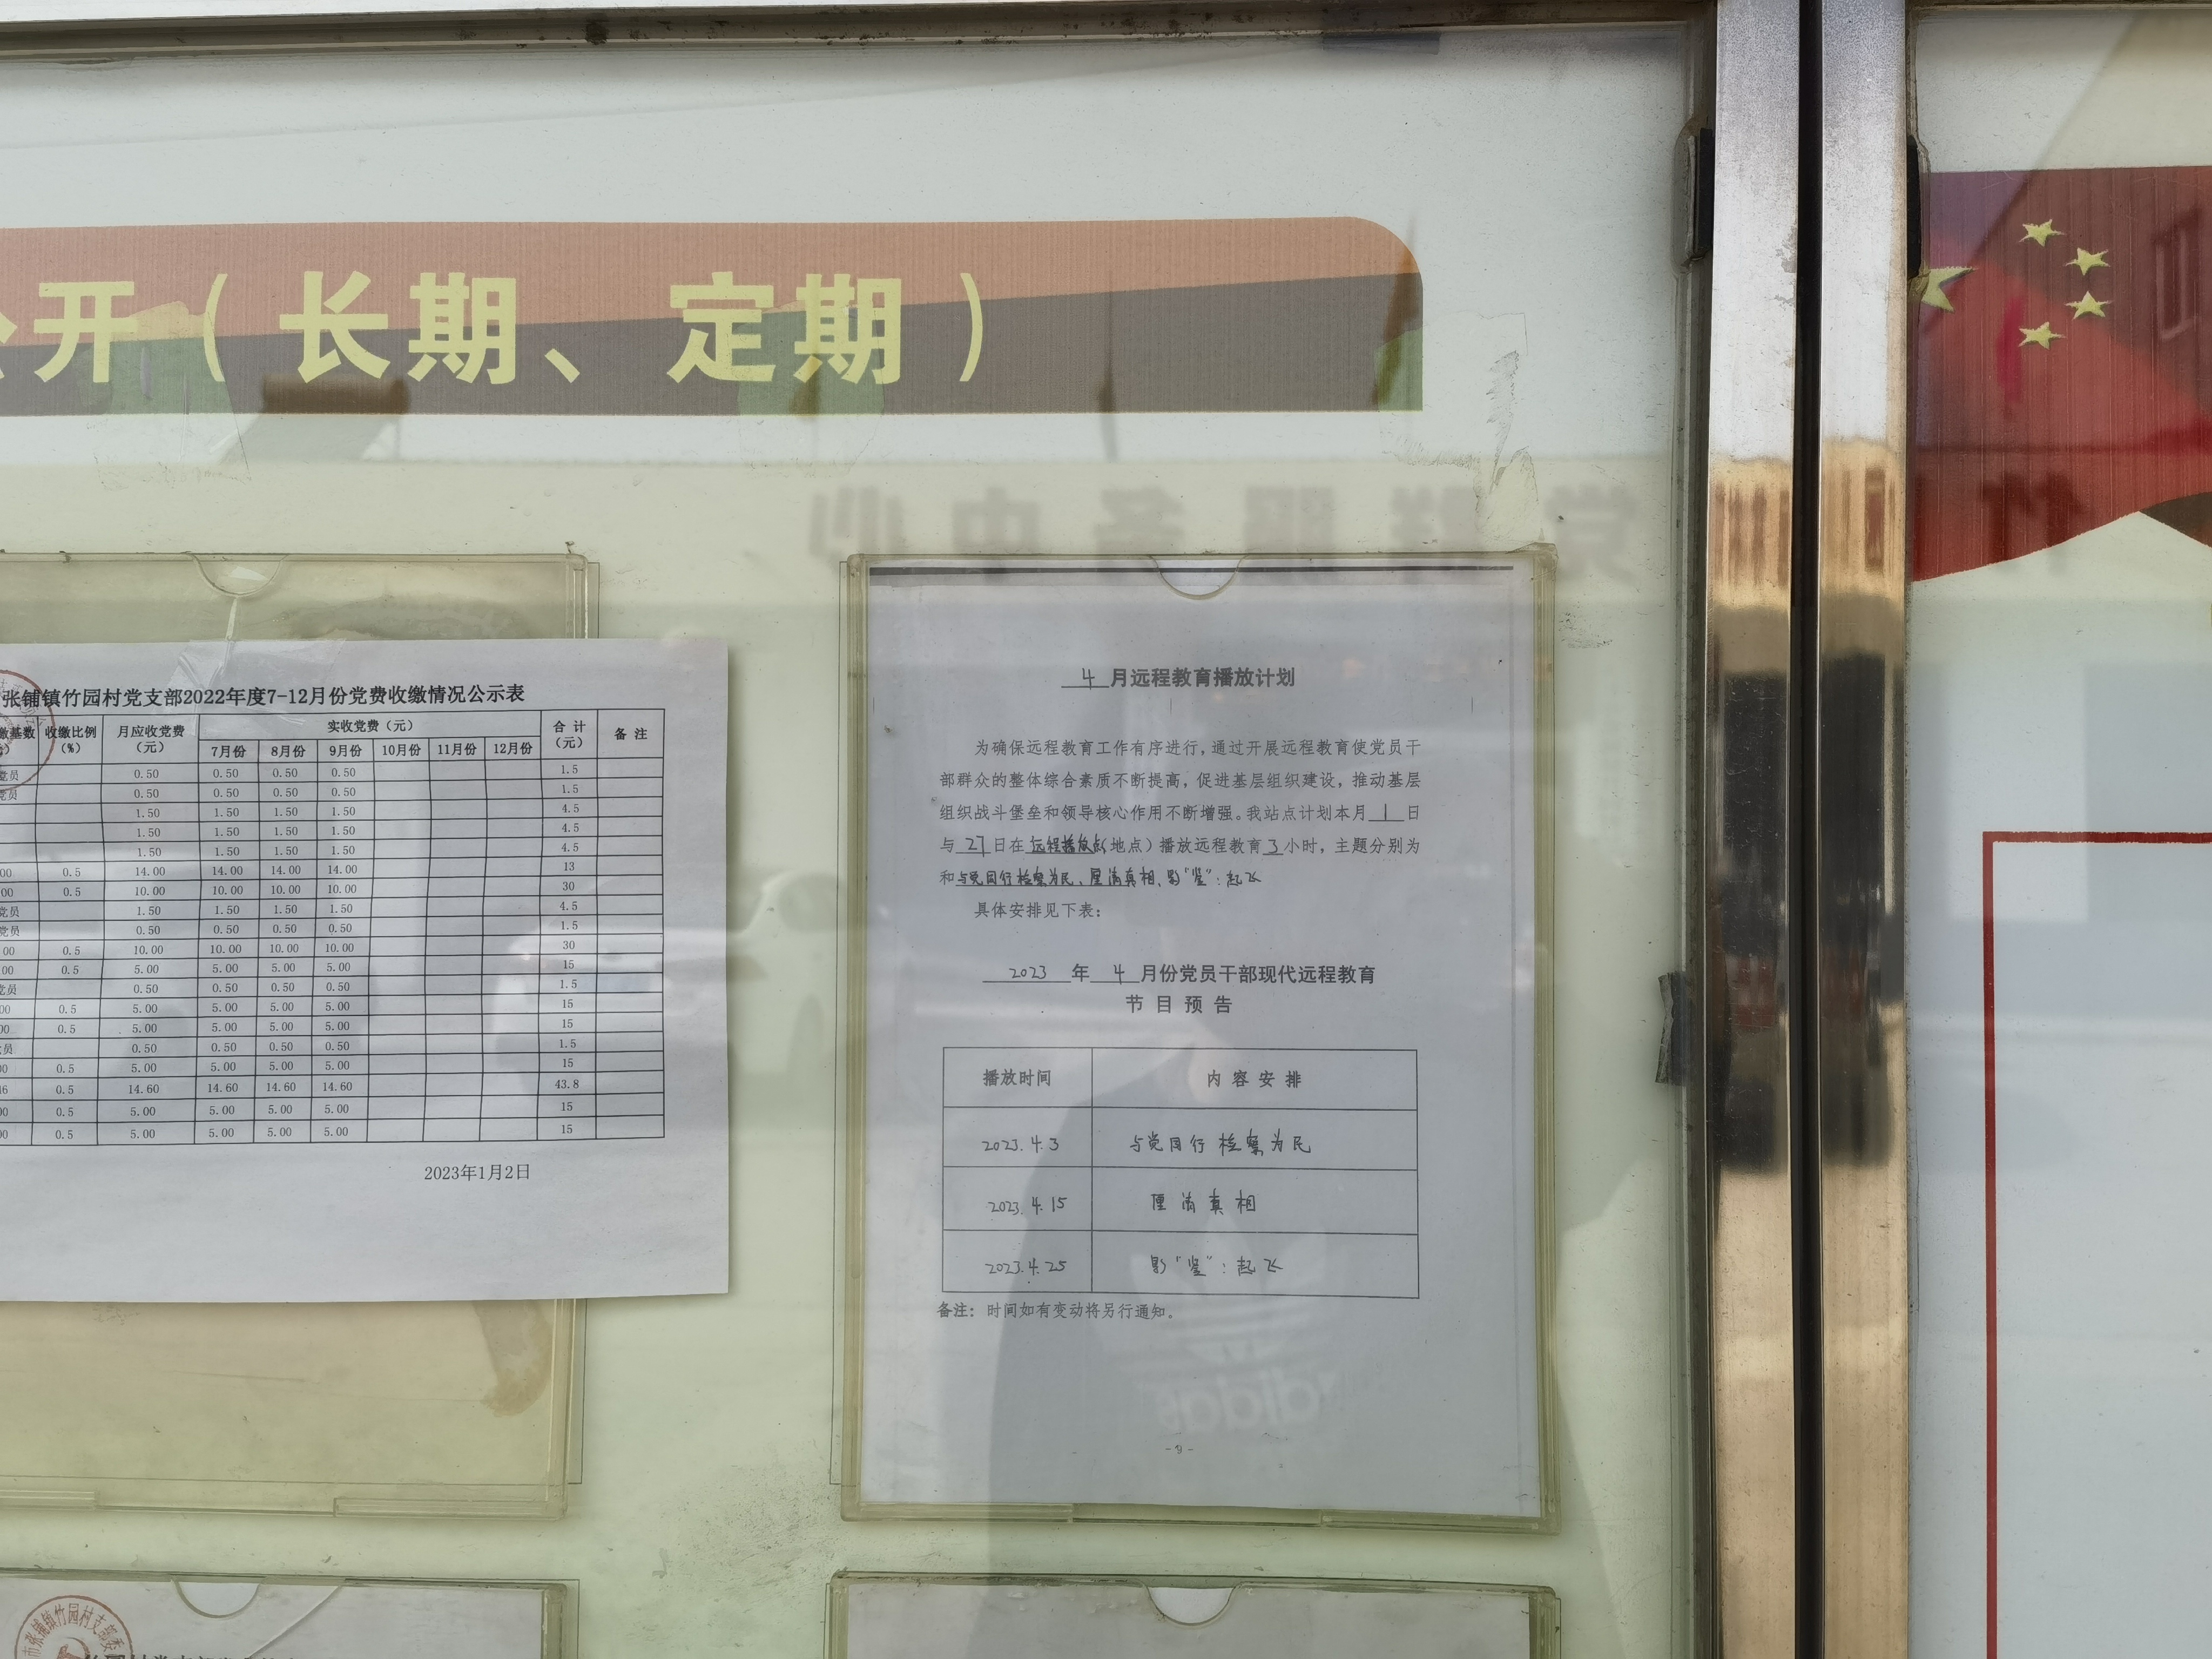 公开（长期、定期）
党群服务中心
张铺镇竹园村党支部2022年度7-12月份党费收缴情况公示表
缴基数 收缴比例（%） 月应收党费（元） 实收党费（元） 合 计（元） 备 注
7月份 8月份 9月份 10月份 11月份 12月份
党员 0.50 0.50 0.50 0.50 1.5
党员 0.50 0.50 0.50 0.50 1.5
1.50 1.50 1.50 1.50 4.5
1.50 1.50 1.50 1.50 4.5
1.50 1.50 1.50 1.50 4.5
00 0.5 14.00 14.00 14.00 14.00 13
00 0.5 10.00 10.00 10.00 10.00 30
党员 1.50 1.50 1.50 1.50 4.5
党员 0.50 0.50 0.50 0.50 1.5
00 0.5 10.00 10.00 10.00 10.00 30
00 0.5 5.00 5.00 5.00 5.00 15
党员 0.50 0.50 0.50 0.50 1.5
00 0.5 5.00 5.00 5.00 5.00 15
00 0.5 5.00 5.00 5.00 5.00 15
员 0.50 0.50 0.50 0.50 1.5
00 0.5 5.00 5.00 5.00 5.00 15
46 0.5 14.60 14.60 14.60 14.60 43.8
00 0.5 5.00 5.00 5.00 5.00 15
00 0.5 5.00 5.00 5.00 5.00 15
2023年1月2日
4月远程教育播放计划
为确保远程教育工作有序进行，通过开展远程教育使党员干
部群众的整体综合素质不断提高，促进基层组织建设，推动基层
组织战斗堡垒和领导核心作用不断增强。我站点计划本月 1 日
与 27 日在 远程播放点（地点）播放远程教育 3 小时，主题分别为
和与党同行 检察为民、厘清真相、影"鉴"：起飞
具体安排见下表：
2023 年 4 月份党员干部现代远程教育
节 目 预 告
播放时间 内 容 安 排
2023.4.3 与党同行 检察为民
2023.4.15 厘清真相
2023.4.25 影"鉴"：起飞
备注：时间如有变动将另行通知。
adidas
市张铺镇竹园村支部委